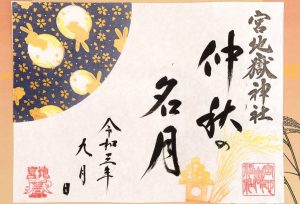 宮地嶽神社
仲秋の
名月
令和三年
九月 日